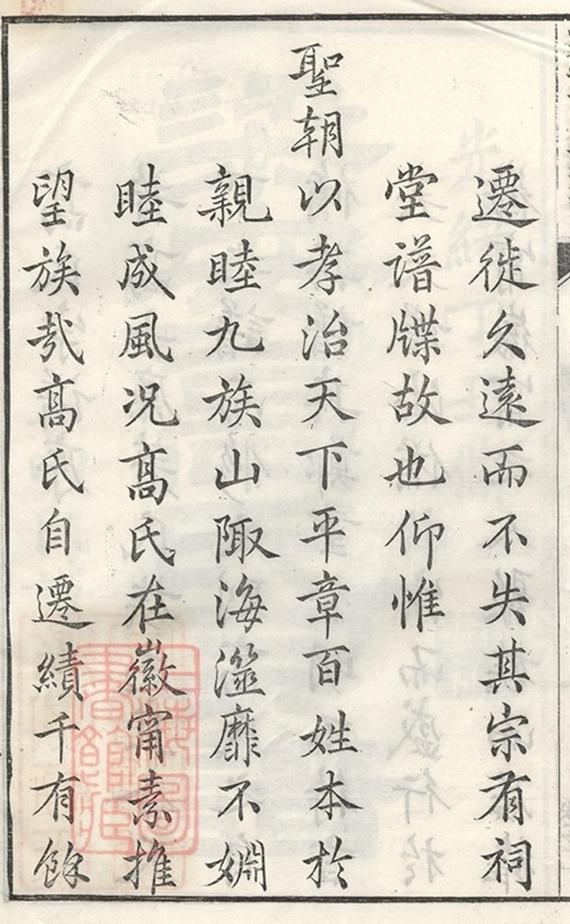 遷徙久遠而不失其宗有祠
堂譜牒故也仰惟
聖朝以孝治天下平章百姓本於
親睦九族山陬海澨靡不婣
睦成風况髙氏在徽甯素推
望族㢤髙氏自遷績千有餘